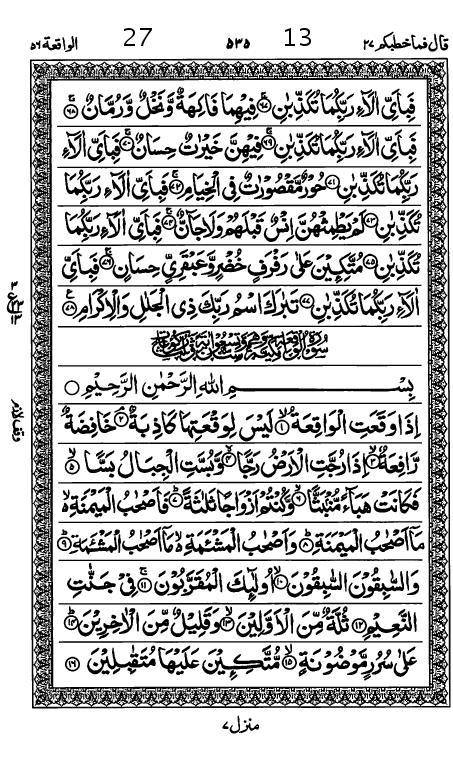 الواقعة ٥٦ 27 ٥٣٥ 13 قال فما خطبكم ٢٧
فَبِاَيِّ اٰلَآءِ رَبِّكُمَا تُكَذِّبٰنِ ﴿٦٧﴾ فِيْهِمَا فَاكِهَةٌ وَّنَخْلٌ وَّرُمَّانٌ ﴿٦٨﴾
فَبِاَيِّ اٰلَآءِ رَبِّكُمَا تُكَذِّبٰنِ ﴿٦٩﴾ فِيْهِنَّ خَيْرٰتٌ حِسَانٌ ﴿٧٠﴾ فَبِاَيِّ اٰلَآءِ
رَبِّكُمَا تُكَذِّبٰنِ ﴿٧١﴾ حُوْرٌ مَّقْصُوْرٰتٌ فِى الْخِيَامِ ﴿٧٢﴾ فَبِاَيِّ اٰلَآءِ رَبِّكُمَا
تُكَذِّبٰنِ ﴿٧٣﴾ لَمْ يَطْمِثْهُنَّ اِنْسٌ قَبْلَهُمْ وَلَا جَآنٌّ ﴿٧٤﴾ فَبِاَيِّ اٰلَآءِ رَبِّكُمَا
تُكَذِّبٰنِ ﴿٧٥﴾ مُتَّكِـِٕيْنَ عَلٰى رَفْرَفٍ خُضْرٍ وَّعَبْقَرِيٍّ حِسَانٍ ﴿٧٦﴾ فَبِاَيِّ
اٰلَآءِ رَبِّكُمَا تُكَذِّبٰنِ ﴿٧٧﴾ تَبٰرَكَ اسْمُ رَبِّكَ ذِى الْجَلٰلِ وَالْاِكْرَامِ ﴿٧٨﴾
سورة الواقعة مكية وهي ست وتسعون اية وثلث ركوعات
بِسْمِ اللهِ الرَّحْمٰنِ الرَّحِيْمِ
اِذَا وَقَعَتِ الْوَاقِعَةُ ﴿١﴾ لَيْسَ لِوَقْعَتِهَا كَاذِبَةٌ ﴿٢﴾ خَافِضَةٌ
رَّافِعَةٌ ﴿٣﴾ اِذَا رُجَّتِ الْاَرْضُ رَجًّا ﴿٤﴾ وَّبُسَّتِ الْجِبَالُ بَسًّا ﴿٥﴾
فَكَانَتْ هَبَآءً مُّنْۢبَثًّا ﴿٦﴾ وَّكُنْتُمْ اَزْوَاجًا ثَلٰثَةً ﴿٧﴾ فَاَصْحٰبُ الْمَيْمَنَةِ
مَاۤ اَصْحٰبُ الْمَيْمَنَةِ ﴿٨﴾ وَاَصْحٰبُ الْمَشْـَٔمَةِ مَاۤ اَصْحٰبُ الْمَشْـَٔمَةِ ﴿٩﴾
وَالسّٰبِقُوْنَ السّٰبِقُوْنَ ﴿١٠﴾ اُولٰٓئِكَ الْمُقَرَّبُوْنَ ﴿١١﴾ فِيْ جَنّٰتِ
النَّعِيْمِ ﴿١٢﴾ ثُلَّةٌ مِّنَ الْاَوَّلِيْنَ ﴿١٣﴾ وَقَلِيْلٌ مِّنَ الْاٰخِرِيْنَ ﴿١٤﴾
عَلٰى سُرُرٍ مَّوْضُوْنَةٍ ﴿١٥﴾ مُّتَّكِـِٕيْنَ عَلَيْهَا مُتَقٰبِلِيْنَ ﴿١٦﴾
منزل ٧